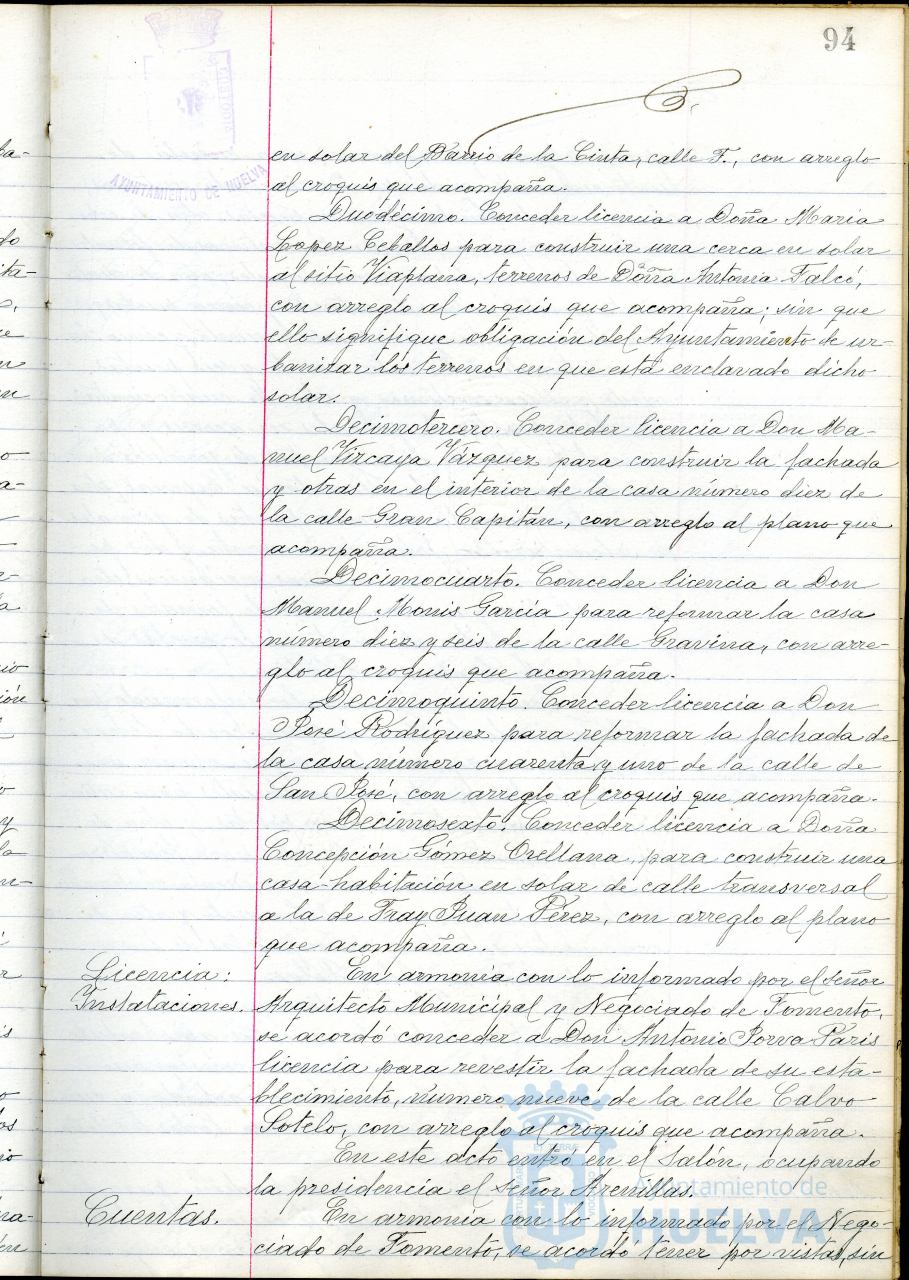 94
en solar del Barrio de la Cinta, calle F., con arreglo
al croquis que acompaña.
AYUNTAMIENTO DE HUELVA
Duodécimo. Conceder licencia a Doña Maria
Lopez Ceballos para construir una cerca en solar
al sitio Viaplana, terrenos de Doña Antonia Falcó,
con arreglo al croquis que acompaña; sin que
ello signifique obligación del Ayuntamiento de ur-
banizar los terrenos en que está enclavado dicho
solar.
Decimotercero. Conceder licencia a Don Ma-
nuel Vizcaya Vázquez para construir la fachada
y otras en el interior de la casa número diez de
la calle Gran Capitán, con arreglo al plano que
acompaña.
Decimocuarto. Conceder licencia a Don
Manuel Monis García para reformar la casa
número diez y seis de la calle Gravina, con arre-
glo al croquis que acompaña.
Decimoquinto. Conceder licencia a Don
José Rodríguez para reformar la fachada de
la casa número cuarenta y uno de la calle de
San José, con arreglo al croquis que acompaña.
Decimosexto. Conceder licencia a Doña
Concepción Gómez Orellana, para construir una
casa-habitación en solar de calle transversal
a la de Fray Juan Pérez, con arreglo al plano
que acompaña.
Licencia: En armonía con lo informado por el señor
Instalaciones. Arquitecto Municipal y Negociado de Fomento,
se acordó conceder a Don Antonio Porva Paris
licencia para revestir la fachada de su esta-
blecimiento, número nueve de la calle Calvo
Sotelo, con arreglo al croquis que acompaña.
En este acto entró en el salón, ocupando
la presidencia el señor Arenillas.
Cuentas. En armonía con lo informado por el Nego-
ciado de Fomento, se acordó tener por vistas, sin
Ayuntamiento de
HUELVA